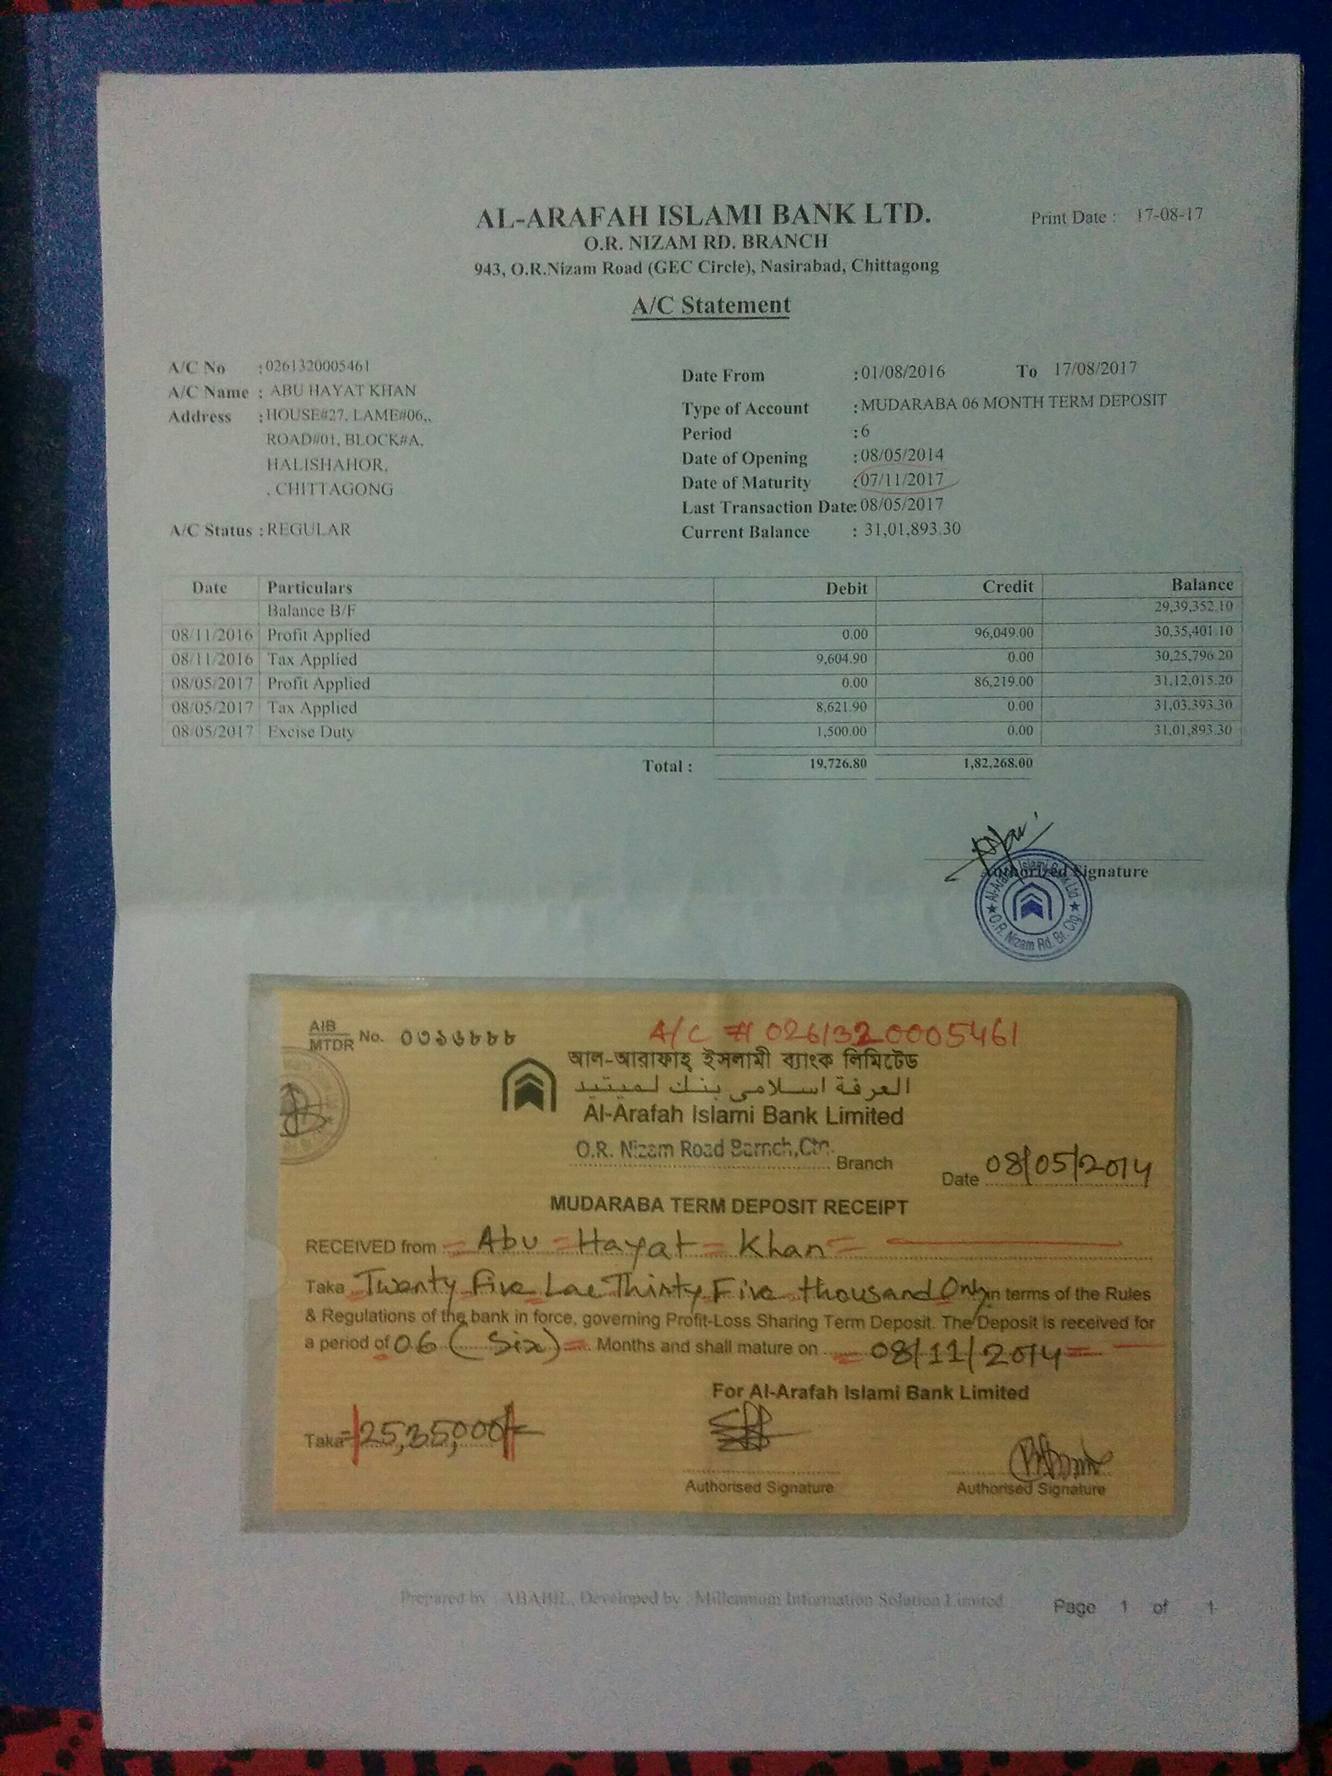 AL-ARAFAH ISLAMI BANK LTD.
Print Date : 17-08-17
O.R. NIZAM RD. BRANCH
943, O.R.Nizam Road (GEC Circle), Nasirabad, Chittagong
A/C Statement
A/C No :0261320005461
A/C Name : ABU HAYAT KHAN
Address :HOUSE#27, LAME#06,,
ROAD#01, BLOCK#A,
HALISHAHOR,
, CHITTAGONG
A/C Status :REGULAR
Date From :01/08/2016 To 17/08/2017
Type of Account :MUDARABA 06 MONTH TERM DEPOSIT
Period :6
Date of Opening :08/05/2014
Date of Maturity :07/11/2017
Last Transaction Date:08/05/2017
Current Balance : 31,01,893.30
Date Particulars Debit Credit Balance
Balance B/F 29,39,352.10
08/11/2016 Profit Applied 0.00 96,049.00 30,35,401.10
08/11/2016 Tax Applied 9,604.90 0.00 30,25,796.20
08/05/2017 Profit Applied 0.00 86,219.00 31,12,015.20
08/05/2017 Tax Applied 8,621.90 0.00 31,03,393.30
08/05/2017 Excise Duty 1,500.00 0.00 31,01,893.30
Total : 19,726.80 1,82,268.00
Authorized Signature
Al-Arafah Islami Bank Ltd
O.R. Nizam Rd. Br. Ctg.
AIB
MTDR No. ০৩১৬৮৮৮
A/C # 0261320005461
আল-আরাফাহ্ ইসলামী ব্যাংক লিমিটেড
العرفة اسلامى بنك لميتيد
Al-Arafah Islami Bank Limited
O.R. Nizam Road Barnch,Ctn. Branch
Date 08/05/2014
MUDARABA TERM DEPOSIT RECEIPT
RECEIVED from = Abu = Hayat = Khan =
Taka Twenty Five Lac Thirty Five thousand Only in terms of the Rules
& Regulations of the bank in force, governing Profit-Loss Sharing Term Deposit. The Deposit is received for
a period of 06 (Six) = Months and shall mature on = 08/11/2014 =
For Al-Arafah Islami Bank Limited
Taka =25,35,000/=
Authorised Signature
Authorised Signature
Prepared by : ABABIL, Developed by : Millennium Information Solution Limited
Page 1 of 1